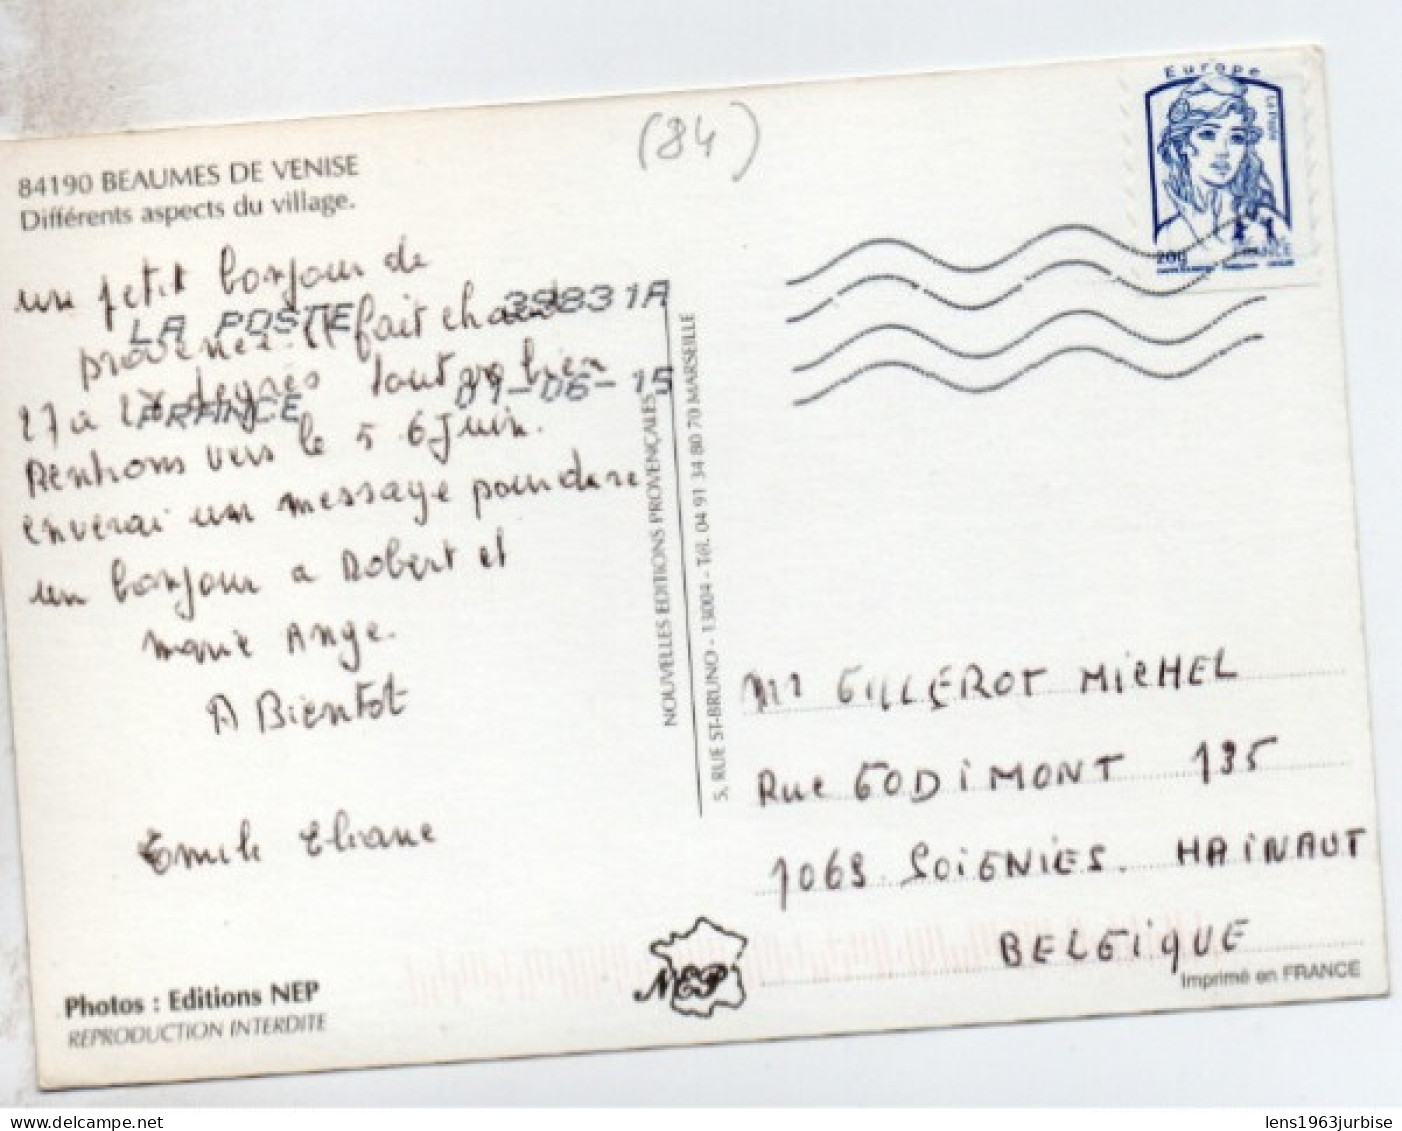 (84)
Europe
La Poste
20g
FRANCE
84190 BEAUMES DE VENISE
Différents aspects du village.
un petit bonjour de
provence. Il fait chaud
27 a degrés tout va bien
Rentrons vers le 5 6 Juin.
enverai un message pour dire
un bonjour a Robert et
Marie Ange.
A Bientot
Emile Eliane
LA POSTE 39831A
FRANCE 01-06-15
NOUVELLES EDITIONS PROVENÇALES
5, RUE ST-BRUNO - 13004 - Tél. 04 91 34 80 70 MARSEILLE
Mr GILLEROT MICHEL
Rue GODIMONT 135
1063 SOIGNIES. HAINAUT
BELGIQUE
Photos : Editions NEP
REPRODUCTION INTERDITE
NEP
Imprimé en FRANCE
delcampe.net
lens1963jurbise